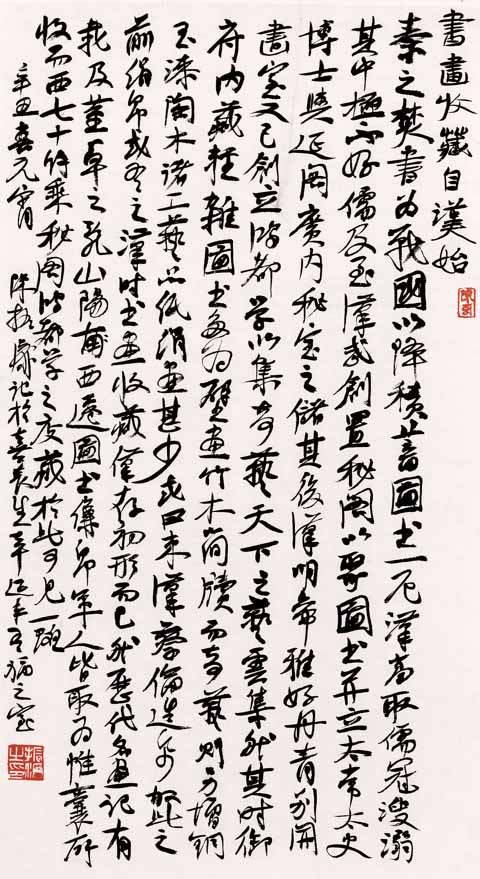 書畫收藏自漢始
秦之焚書為戰國以降積蓄圖書一厄漢高取儒冠溲溺
其中極不好儒及至漢武創置秘閣以聚圖書并立太常太史
博士興延閣廣內秘室之儲其後漢明帝雅好丹青別開
畫室又已創立鴻都學以集奇藝天下之藝雲集然其時御
府內藏種雜圖書多為壁畫竹木簡牘而奇藝則方增銅
玉漆陶木諸工藝品紙絹畫甚少或曰東漢蔡倫造紙此之
前絹帛或有之漢時書畫收藏僅存初形而已然歷代名畫記有
載及董卓之亂山陽甫西遷圖書縑帛軍人皆取為帷囊所
收而西七十餘乘秘閣鴻都學之庋藏於此可見一斑
辛丑春元宵 陳振濂記於 之室